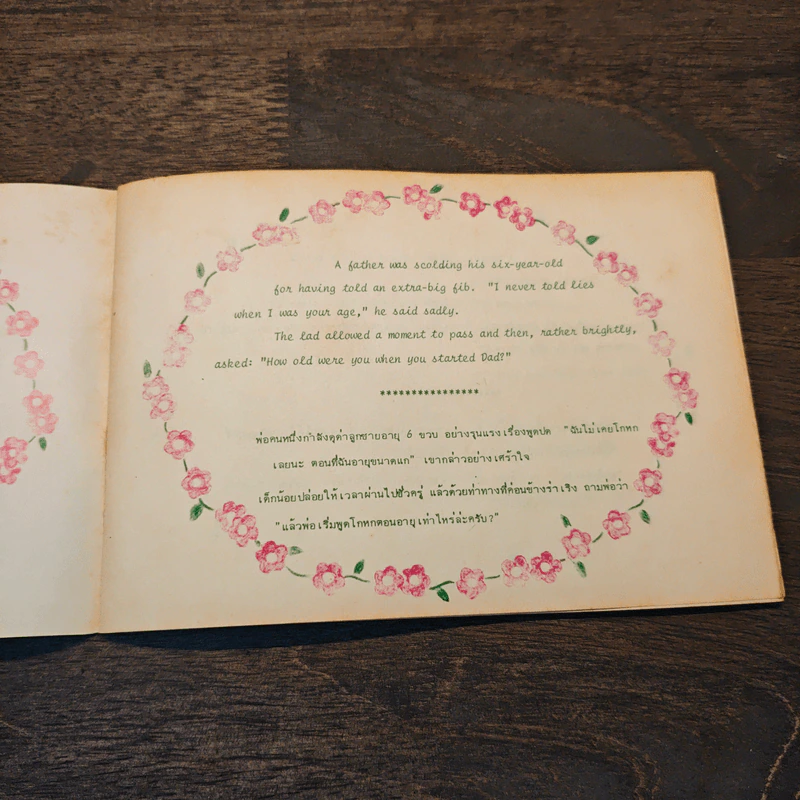 A father was scolding his six-year-old
for having told an extra-big fib. "I never told lies
when I was your age," he said sadly.
The lad allowed a moment to pass and then, rather brightly,
asked: "How old were you when you started Dad?"
****************
พ่อคนหนึ่งกำลังดุด่าลูกชายอายุ 6 ขวบ อย่างรุนแรงเรื่องพูดปด "ฉันไม่เคยโกหก
เลยนะ ตอนที่ฉันอายุขนาดแก" เขากล่าวอย่างเศร้าใจ
เด็กน้อยปล่อยให้เวลาผ่านไปชั่วครู่ แล้วด้วยท่าทางที่ค่อนข้างร่าเริง ถามพ่อว่า
"แล้วพ่อเริ่มพูดโกหกตอนอายุเท่าไหร่ล่ะครับ?"